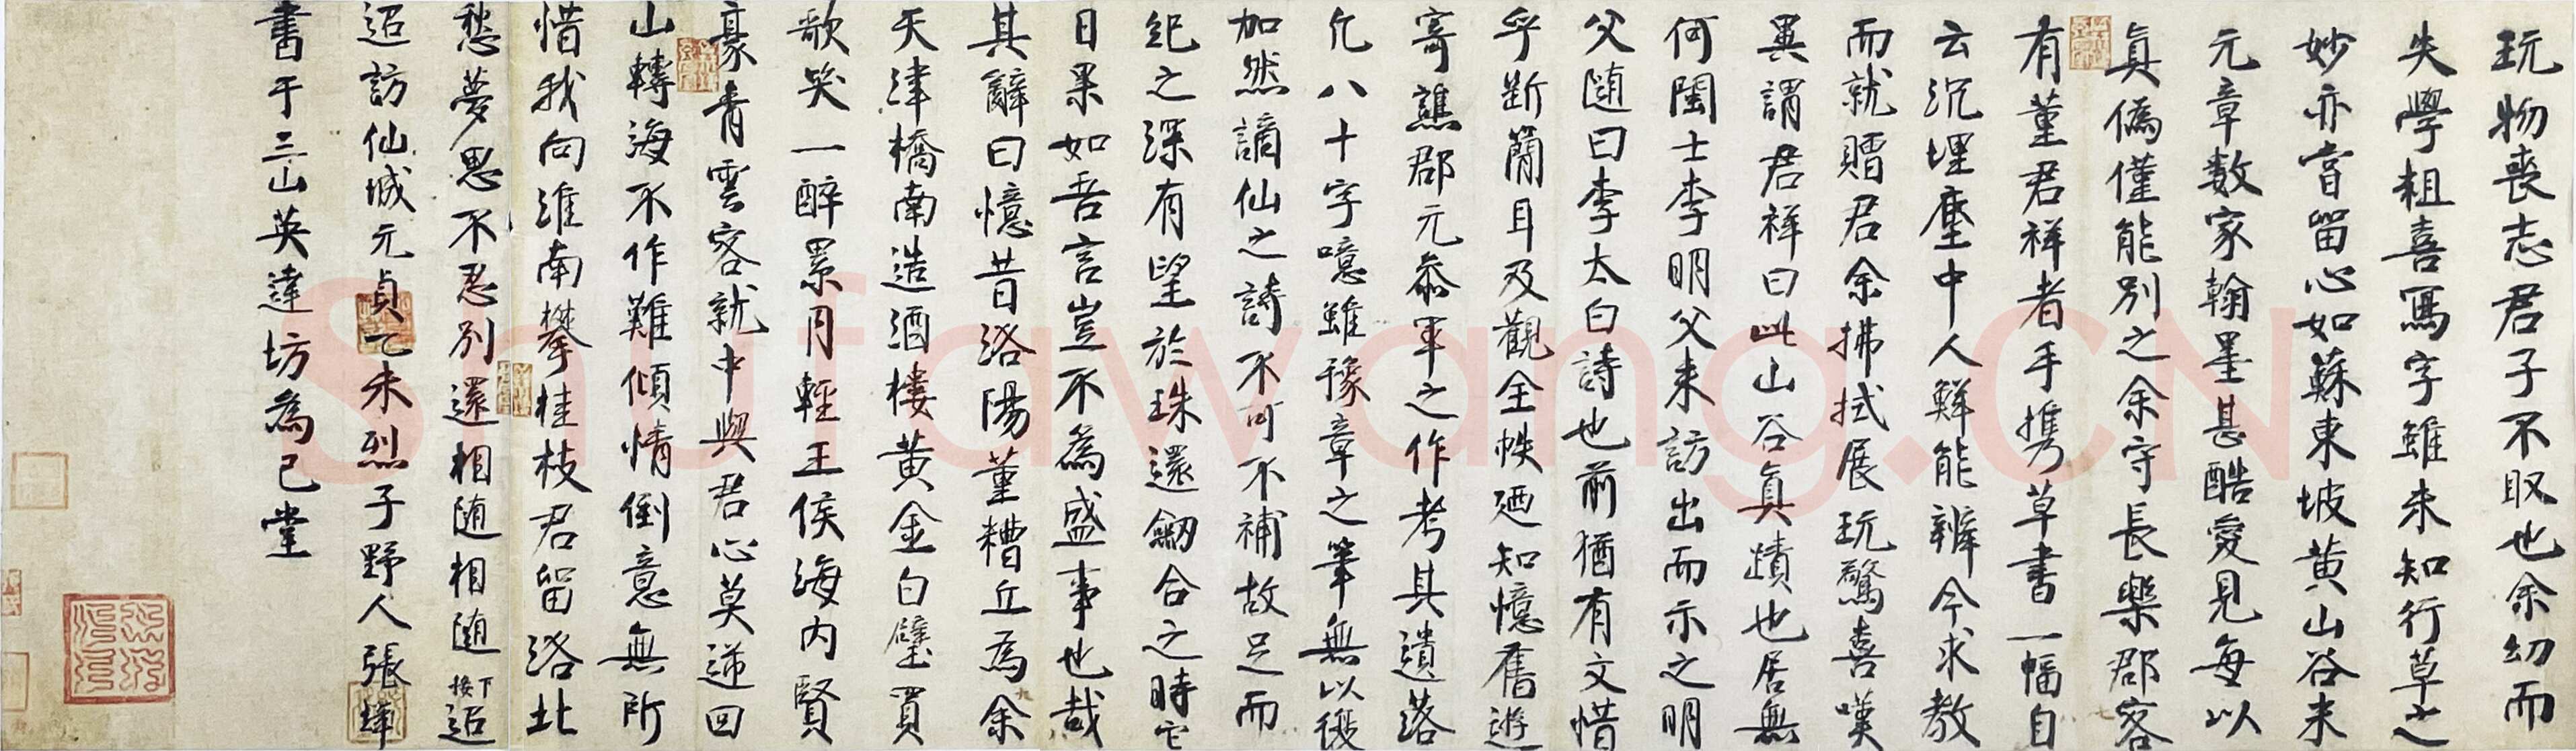 玩物喪志君子不取也余幼而
失學粗喜寫字雖未知行草之
妙亦嘗留心如蘇東坡黃山谷米
元章數家翰墨甚酷愛見每以
真偽僅能別之余守長樂郡客
有董君祥者手攜草書一幅自
云沉埋塵中人鮮能辨今求教
而就贈君余拂拭展玩驚喜嘆
異謂君祥曰此山谷真蹟也居無
何閩士李明父來訪出而示之明
父隨曰李太白詩也前猶有文惜
乎斷簡耳及觀全帙廼知憶舊遊
寄譙郡元參軍之作考其遺落
凢八十字噫雖豫章之筆無以復
加然謫仙之詩不可不補故足而
紀之深有望於珠還劒合之時它
日果如吾言豈不為盛事也哉
其辭曰憶昔洛陽董糟丘為余
天津橋南造酒樓黃金白璧買
歌笑一醉累月輕王侯海內賢
豪青雲客就中與君心莫逆回
山轉海不作難傾情倒意無所
惜我向淮南攀桂枝君留洛北
愁夢思不忍別還相隨相隨接下迢
迢訪仙城元貞乙未烈子野人張鐸
書于三山英達坊為己堂
Shufawang.CN